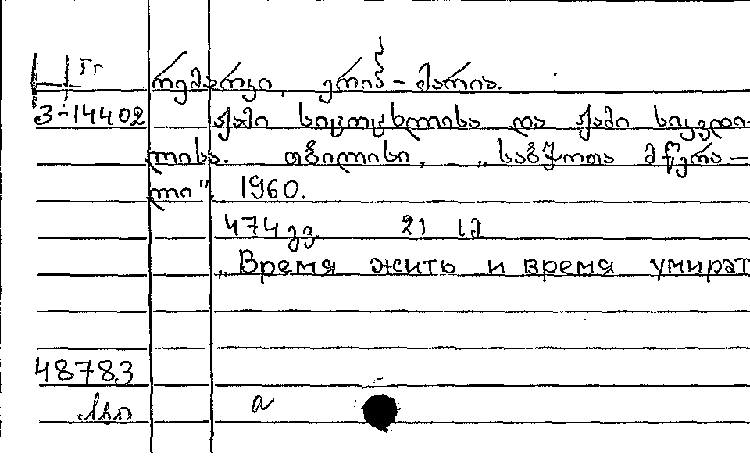 რემარკი, ერიხ-მარია.
3-14402 ჟამი სიცოცხლისა და ჟამი სიკვდი-
ლისა. თბილისი, „საბჭოთა მწერა-
ლი“, 1960.
474 გვ. 21 სმ
„Время жить и время умират
48783
a